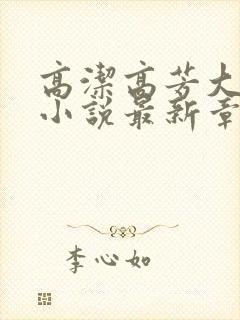 高潔高芳大
小說最新章
李心如